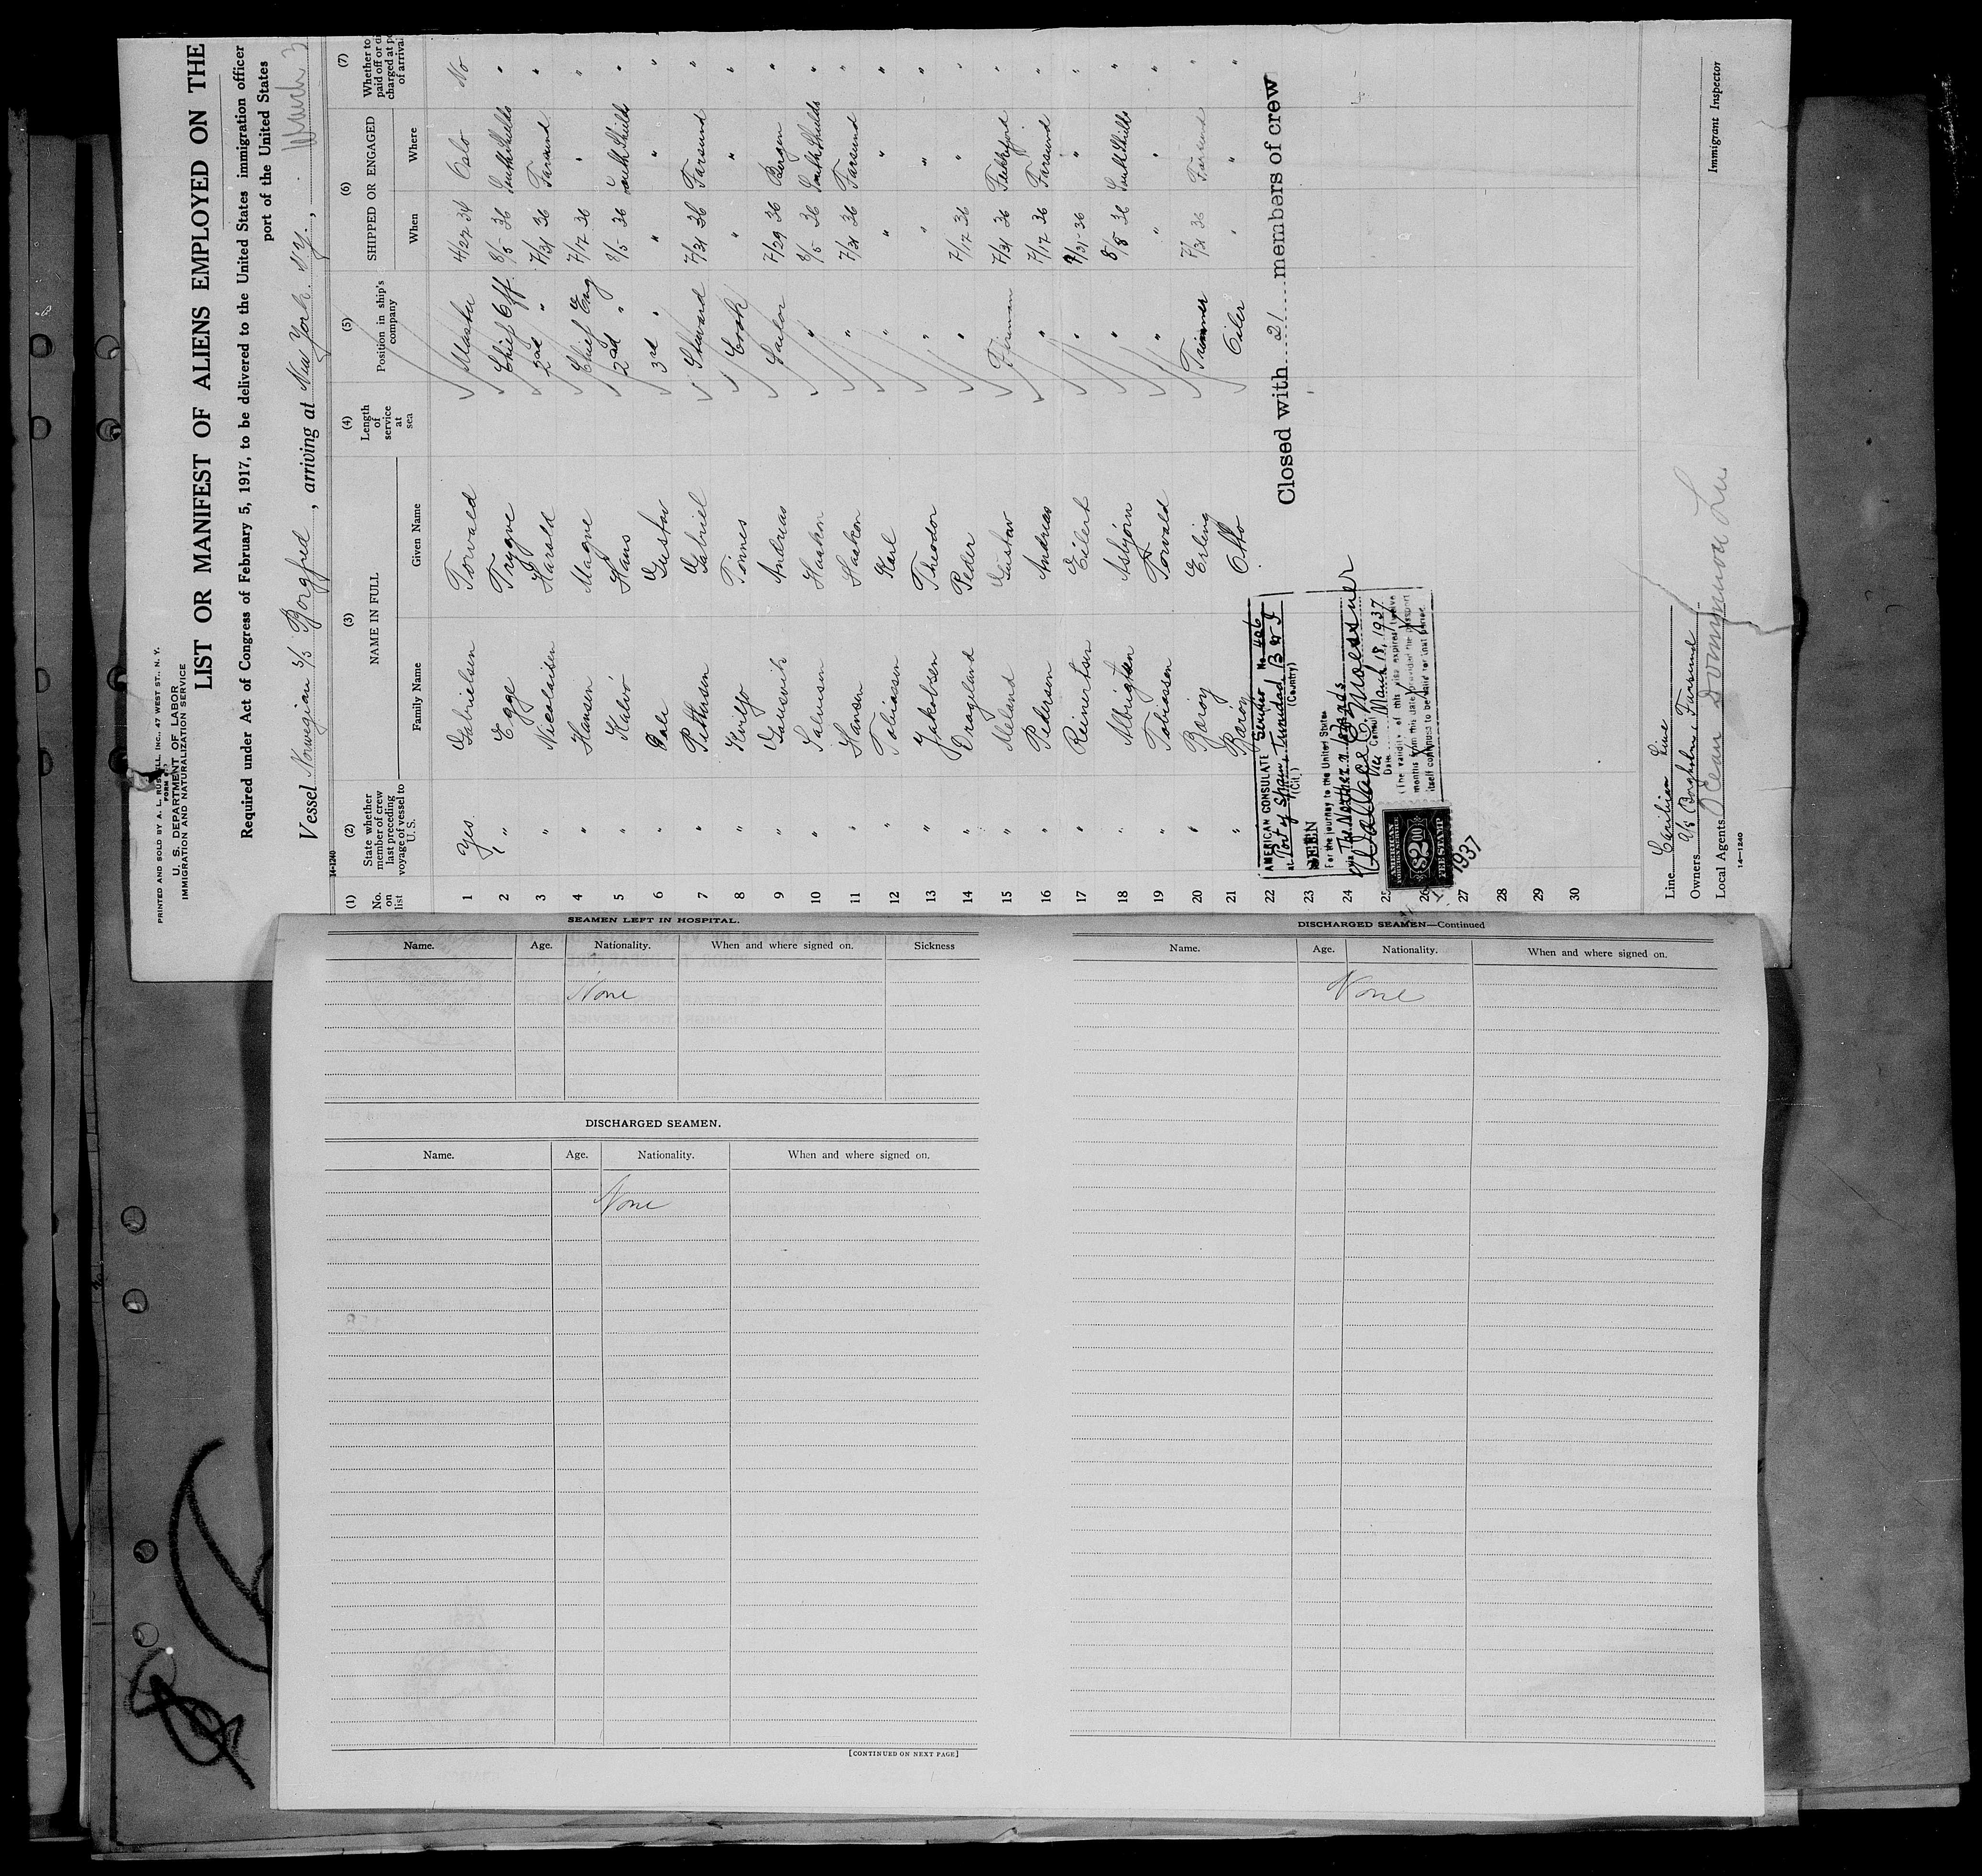 PRINTED AND SOLD BY A. L. RUSSELL, INC., 47 WEST ST., N. Y.
FORM
U. S. DEPARTMENT OF LABOR
IMMIGRATION AND NATURALIZATION SERVICE
LIST OR MANIFEST OF ALIENS EMPLOYED ON THE
Required under Act of Congress of February 5, 1917, to be delivered to the United States immigration officer
port of the United States
Vessel Norwegian S/S Borgfred, arriving at New York. N.Y., March 3
14-1240
(1) (2) (3) (4) (5) (6) (7)
No. on list
State whether member of crew last preceding voyage of vessel to U. S.
NAME IN FULL
Family Name Given Name
Length of service at sea
Position in ship's company
SHIPPED OR ENGAGED
When Where
Whether to paid off or di charged at po of arrival
1 Yes. Gabrielsen Torvald Master 4/22 36 Oslo No
2 " Egge Trygve Chief Off. 8/5 36 South Shields "
3 " Nicolaisen Harald 2nd " 7/31 36 Farsund "
4 " Hansen Magne Chief Eng 7/17 36 " "
5 " Hans 2nd " 8/5 36 South Shields "
6 " Gustav 3rd " " " "
7 " Gabriel Steward 7/31 36 Farsund "
8 " Tonnes Cook " " "
9 " Andreas Sailor 7/29 36 Bergen "
10 " Salvesen Haakon " 8/5 36 South Shields "
11 " Hansen Haakon " 7/31 36 Farsund "
12 " Tobiassen Karl " " " "
13 " Jakobsen Theodor " " " "
14 " Dragland Peder " 7/17 36 " "
15 " Meland Gustav Fireman 7/31 36 Flekkefjord "
16 " Pedersen Andreas " 7/17 36 Farsund "
17 " Reinertsen Eilert " 7/31-36 " "
18 " Asbjørn " 8/8 36 South Shields "
19 " Tobiassen Torvald " " " "
20 " Barøy Erling Trimmer 7/31 36 Farsund "
21 " Barøy Otto Oiler " " "
22
23
24
25
26
27
28
29
30
Closed with 21 members of crew
AMERICAN CONSULATE
at Port of Spain, Trinidad B W I
(City) (Country)
SEEN
For the journey to the United States
Wallace E. Moessner
Vice Consul
Date March 18, 1937
(The validity of this visa expires twelve
months from this date provided the passport
itself continues to be valid for that period.
AMERICAN
FOREIGN SERVICE
$2.00
FEE STAMP
1937
Line
Owners Farsund
Local Agents Ocean Dominion Line
14-1240
Immigrant Inspector
SEAMEN LEFT IN HOSPITAL.
Name. Age. Nationality. When and where signed on. Sickness
None
DISCHARGED SEAMEN.
Name. Age. Nationality. When and where signed on.
None
[CONTINUED ON NEXT PAGE]
DISCHARGED SEAMEN—Continued
Name. Age. Nationality. When and where signed on.
None